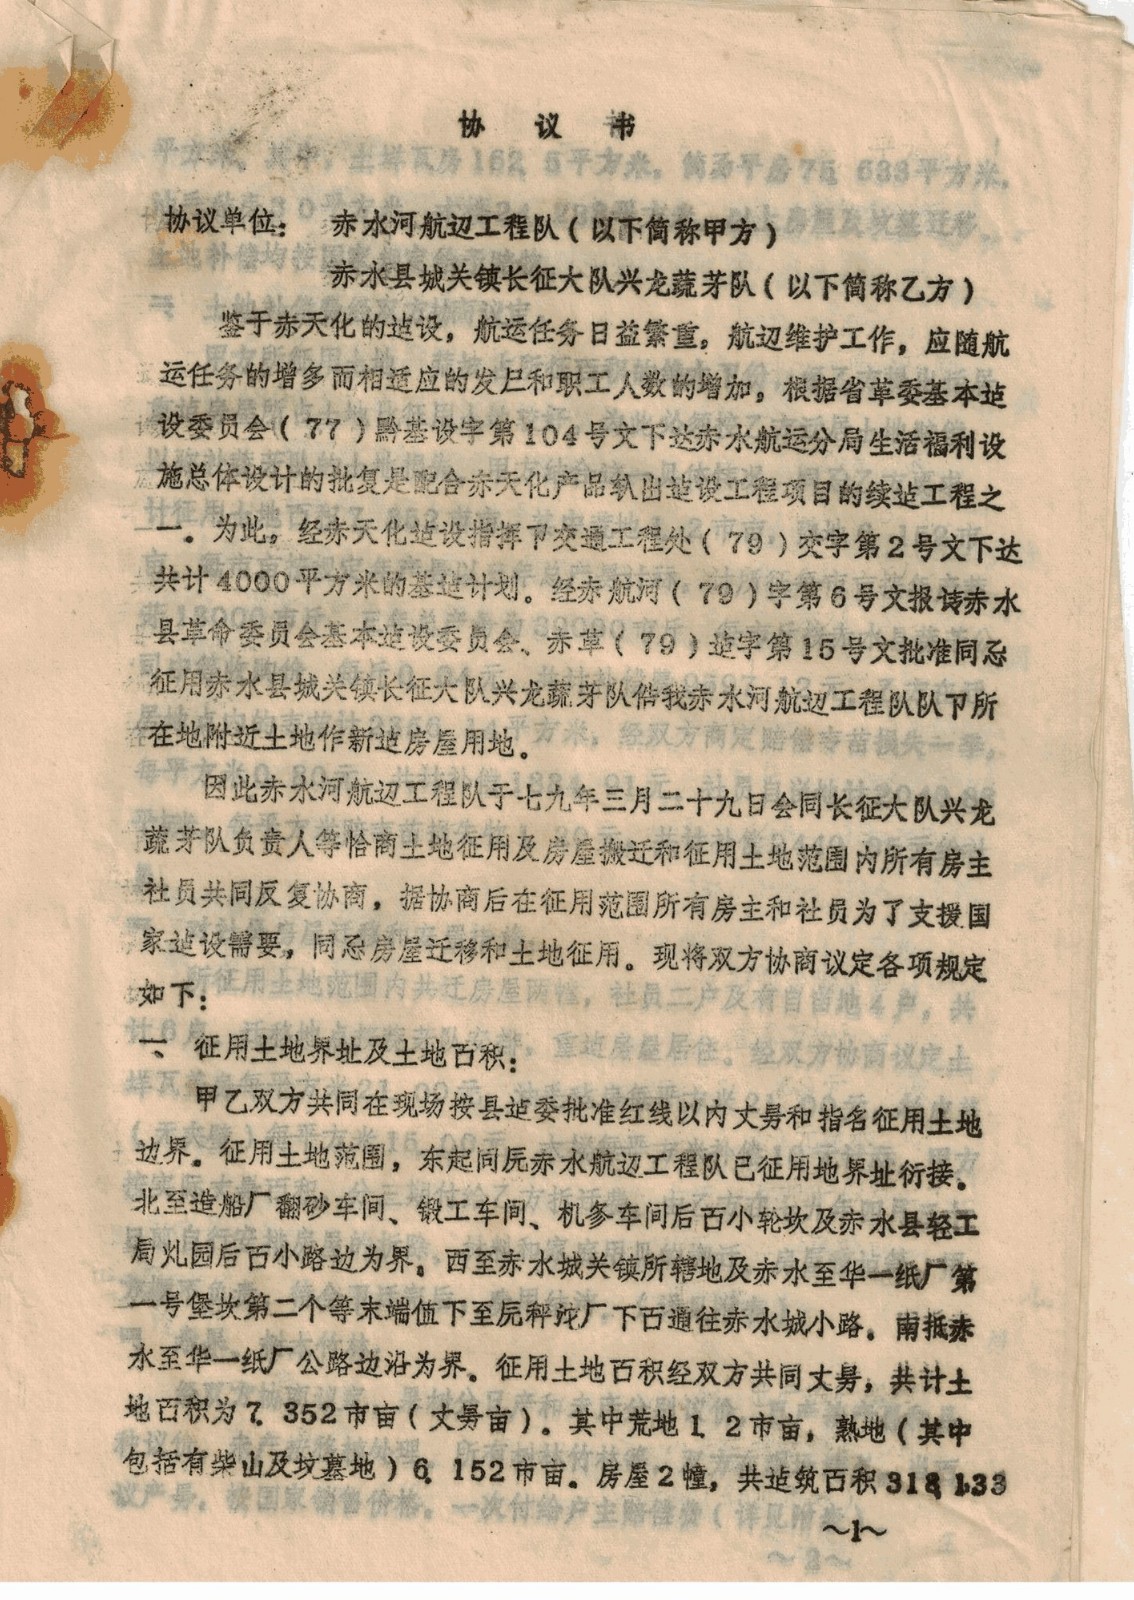 协 议 书
协议单位： 赤水河航道工程队（以下简称甲方）
赤水县城关镇长征大队兴龙蔬菜队（以下简称乙方）
鉴于赤天化的建设，航运任务日益繁重。航道维护工作，应随航
运任务的增多而相适应的发展和职工人数的增加。根据省革委基本建
设委员会（77）黔基设字第104号文下达赤水航运分局生活福利设
施总体设计的批复是配合赤天化产品轨出建设工程项目的续建工程之
一。为此。经赤天化建设指挥部交通工程处（79）交字第2号文下达
共计4000平方米的基建计划。经赤航河（79）字第6号文报请赤水
县革命委员会基本建设委员会、赤革（79）建字第15号文批准同意
征用赤水县城关镇长征大队兴龙蔬菜队偕我赤水河航道工程队队部所
在地附近土地作新建房屋用地。
因此赤水河航道工程队于七九年三月二十九日会同长征大队兴龙
蔬菜队负责人等恰商土地征用及房屋搬迁和征用土地范围内所有房主
社员共同反复协商，据协商后在征用范围所有房主和社员为了支援国
家建设需要，同意房屋迁移和土地征用。现将双方协商议定各项规定
如下：
一、征用土地界址及土地面积：
甲乙双方共同在现场按县建委批准红线以内丈量和指名征用土地
边界。征用土地范围，东起同原赤水航道工程队已征用地界址衍接。
北至造船厂翻砂车间、锻工车间、机修车间后面小轮坎及赤水县轻工
局灶园后面小路边为界。西至赤水城关镇所辖地及赤水至华一纸厂第
一号堡坎第二个等末端值下至原秤沱厂下面通往赤水城小路。南抵赤
水至华一纸厂公路边沿为界。征用土地面积经双方共同丈量，共计土
地面积为7.352市亩（丈量亩）。其中荒地1.2市亩，熟地（其中
包括有柴山及坟墓地）6.152市亩。房屋2幢，共建筑面积318.133
～1～